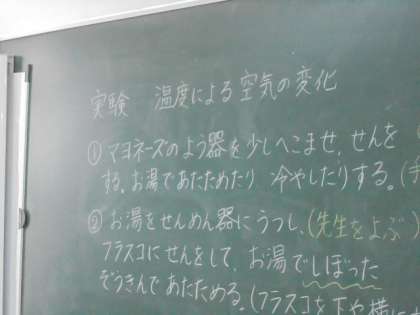 実験　温度による空気の変化
①マヨネーズのよう器を少しへこませ、せんを
する。お湯であたためたり 冷やしたりする。(手
②お湯をせんめん器にうつし、(先生をよぶ)
フラスコにせんをして、お湯でしぼった
ぞうきんであたためる。(フラスコを下や横に